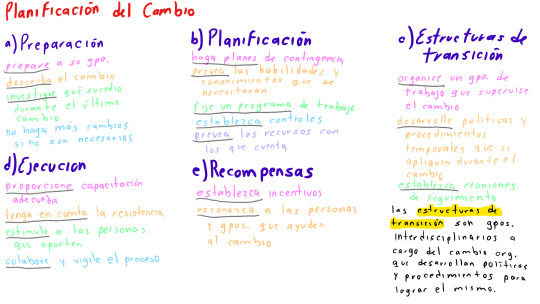 Planificación del Cambio
a) Preparación
prepare a su gpo.
describa el cambio
investigue qué sucedio
durante el último
cambio
no haga más cambios
si no son necesarios
b) Planificación
haga planes de contingencia
prevea las habilidades y
conocimientos que se
necesitaran
Fije un programa de trabajo
establezca controles
prevea los recursos con
los que cuenta
c) Estructuras de
transición
organice un gpo. de
trabajo que supervise
el cambio
desarrolle políticas y
procedimientos
temporales que se
apliquen durante el
cambio
establezca reuniones
de seguimiento
las estructuras de
transición son gpos.
interdisciplinarios a
cargo del cambio org.
que desarrollan políticas
y procedimientos para
lograr el mismo.
d) Ejecución
proporcione capacitación
adecuada
tenga en cuenta la resistencia
estimule a las personas
que aporten
colabore y vigile el proceso
e) Recompensas
establezca incentivos
reconozca a las personas
y gpos. que ayuden
al cambio